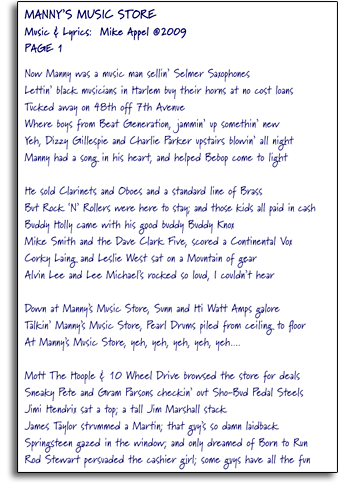 MANNY'S MUSIC STORE
Music & Lyrics: Mike Appel @2009
PAGE 1
Now Manny was a music man sellin' Selmer Saxophones
Lettin' black musicians in Harlem buy their horns at no cost loans
Tucked away on 48th off 7th Avenue
Where boys from Beat Generation, jammin' up somethin' new
Yeh, Dizzy Gillespie and Charlie Parker upstairs blowin' all night
Manny had a song in his heart, and helped Bebop come to light
He sold Clarinets and Oboes and a standard line of Brass
But Rock 'N' Rollers were here to stay; and those kids all paid in cash
Buddy Holly came with his good buddy Buddy Knox
Mike Smith and the Dave Clark Five, scored a Continental Vox
Corky Laing and Leslie West sat on a Mountain of gear
Alvin Lee and Lee Michael's rocked so loud, I couldn't hear
Down at Manny's Music Store, Sunn and Hi Watt Amps galore
Talkin' Manny's Music Store, Pearl Drums piled from ceiling to floor
At Manny's Music Store, yeh, yeh, yeh, yeh, yeh....
Mott The Hoople & 10 Wheel Drive browsed the store for deals
Sneaky Pete and Gram Parsons checkin' out Sho-Bud Pedal Steels
Jimi Hendrix sat a top; a tall Jim Marshall stack
James Taylor strummed a Martin; that guy's so damn laidback
Springsteen gazed in the window; and only dreamed of Born to Run
Rod Stewart persuaded the cashier girl; some guys have all the fun